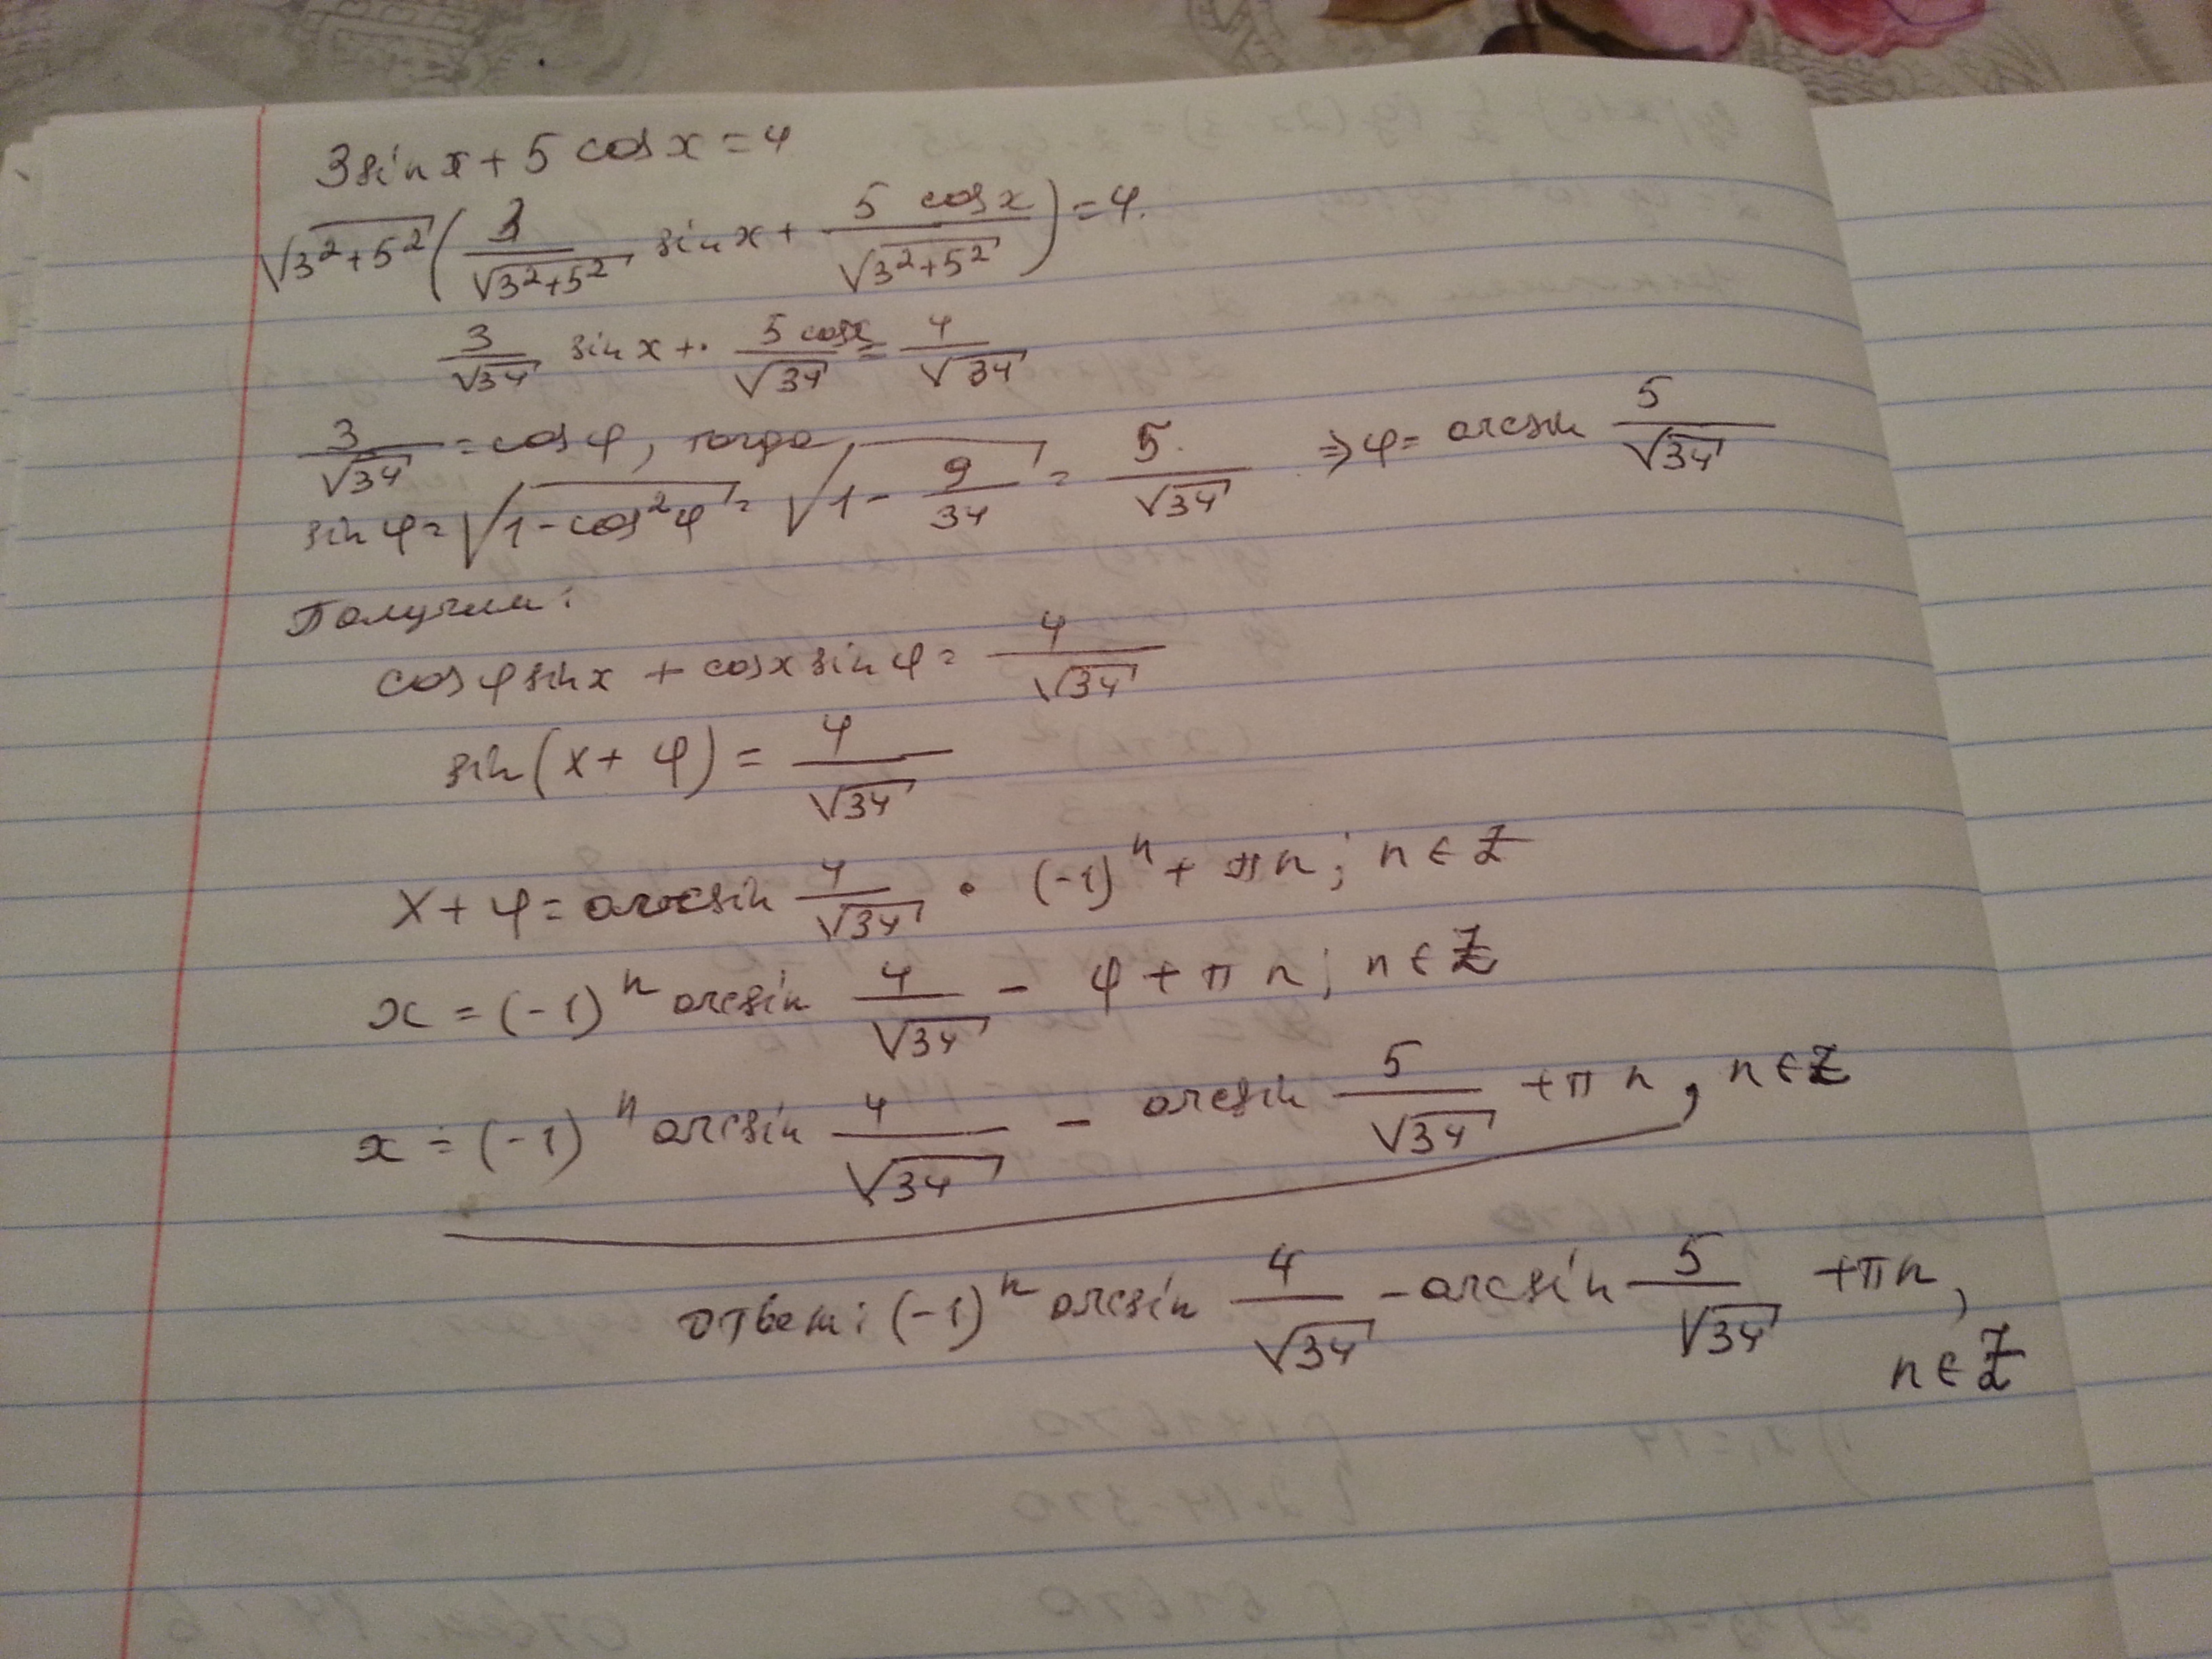 3sinx + 5 cosx = 4
√(3²+5²) (3/√(3²+5²) sinx + 5 cosx/√(3²+5²)) = 4.
3/√34 sinx + 5 cosx/√34 = 4/√34
3/√34 = cosφ, тогда
sinφ = √(1-cos²φ) = √(1 - 9/34) = 5/√34 ⇒ φ = arcsin 5/√34
Получим:
cosφsinx + cosxsinφ = 4/√34
sin(x + φ) = 4/√34
x + φ = arcsin 4/√34 • (-1)ⁿ + πn; n ∈ Z
x = (-1)ⁿ arcsin 4/√34 - φ + πn; n ∈ Z
x = (-1)ⁿ arcsin 4/√34 - arcsin 5/√34 + πn, n ∈ Z
ответ: (-1)ⁿ arcsin 4/√34 - arcsin 5/√34 + πn,
n ∈ Z